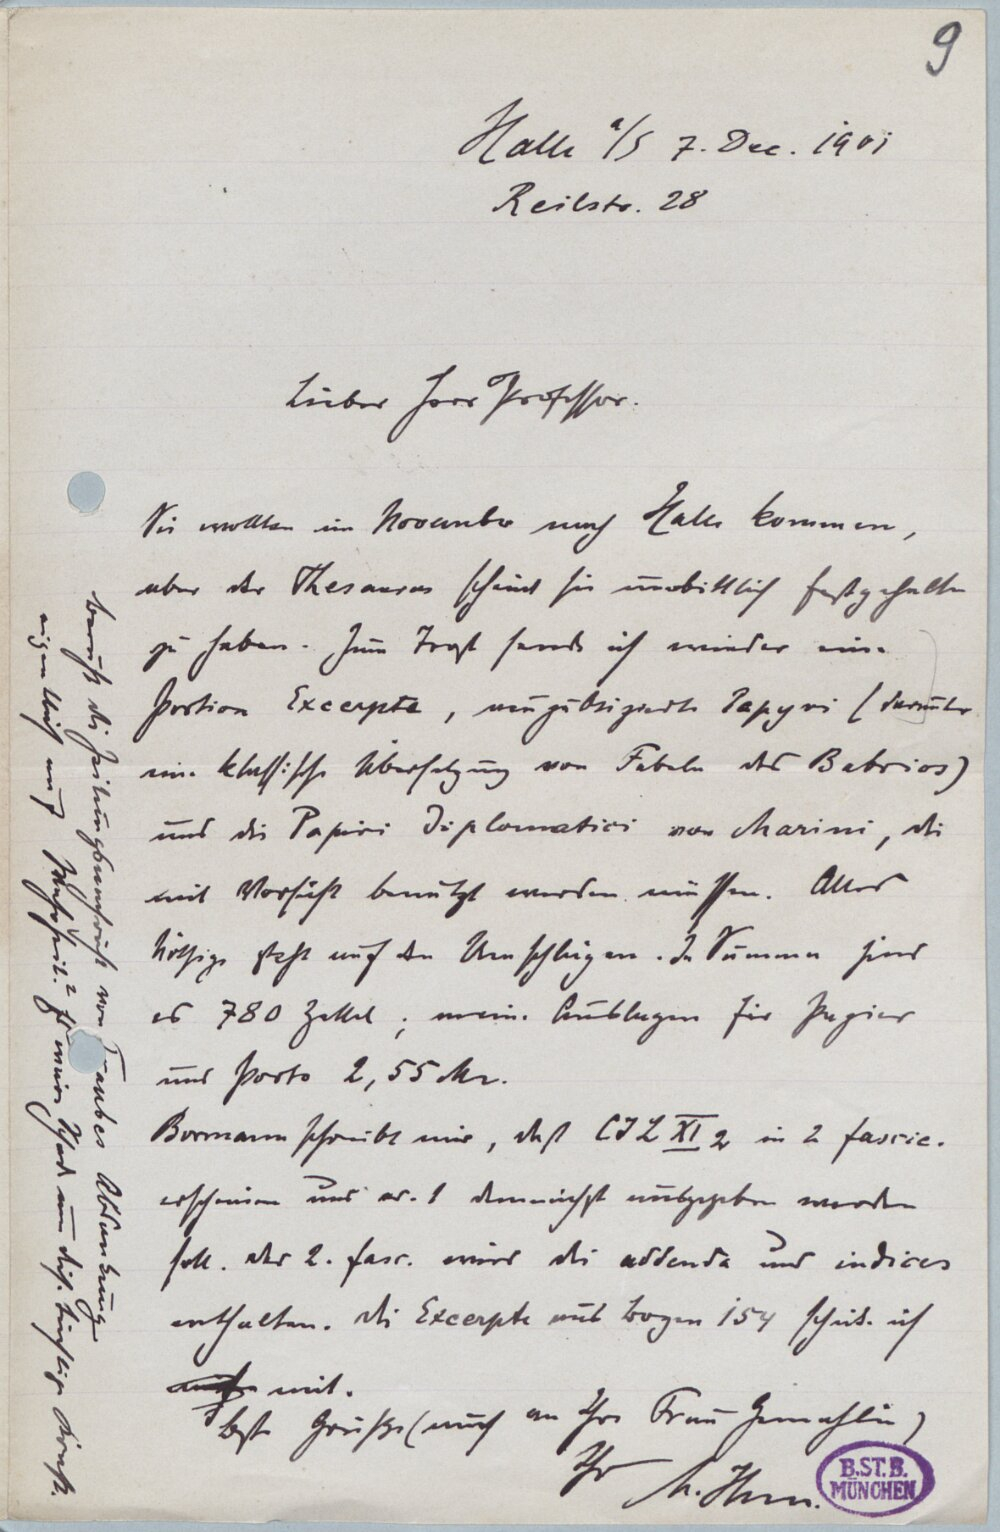 9
Halle a/S 7. Dec. 1901
Reilstr. 28
Lieber Herr Professor.
Sie wollten im November nach Halle kommen,
aber der Thesaurus scheint sie unerbittlich festgehalten
zu haben. Zum Trost sende ich wieder eine
Portion Excerpte, neugebügelte Papyri (darunter
eine klassische Übersetzung von Fabeln des Babrios)
und die Papiri Diplomatici von Marini, die
mit Vorsicht benutzt werden müssen. Alles
Nöthige steht auf den Umschlägen. In Summa sind
es 780 Zettel; meine Auslagen für Papier
und Porto 2,55 Mr.
Bormann schreibt mir, daß CIL XI 2 in 2 fascic.
erscheinen und nr. 1 demnächst ausgegeben werden
soll. Der 2. fasc. wird die addenda und indices
enthalten. Die Excerpte aus Bogen 154 schicke ich
mit.
Beste Grüße (auch an Ihre Frau Gemahlin)
Ihr M. Ihm.
Beruht die Zeitungsnachricht von Traubes Abdankung
eigentlich auf Wahrheit? Es wäre Schade um diese tüchtige Kraft.
B.ST.B.
MÜNCHEN